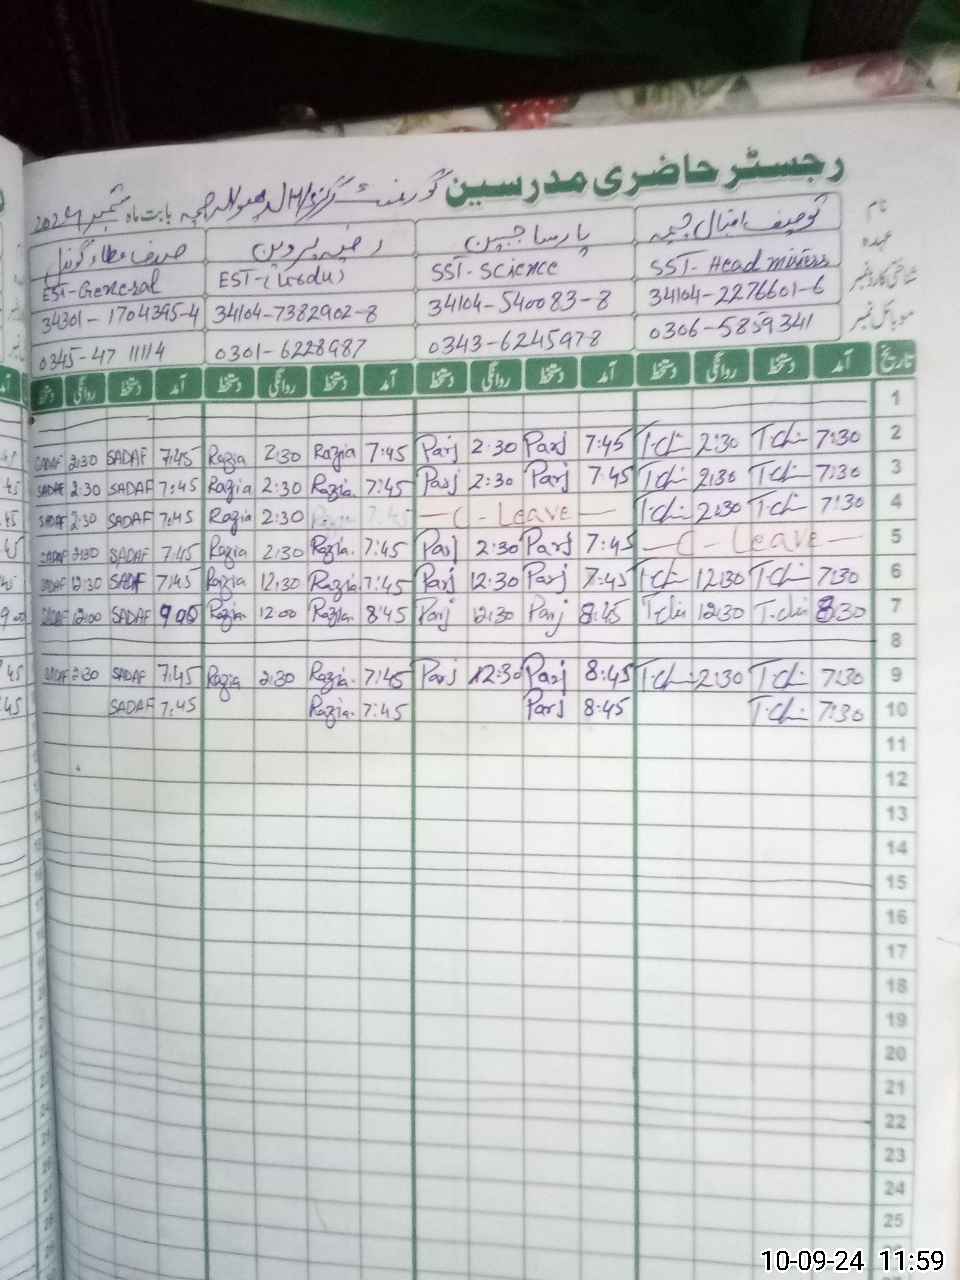 رجسٹر حاضری مدرسین گورنمنٹ گرلز بابت ماہ ستمبر 2024
نام توصیف اقبال چیمہ پارسا جبین رضیہ پروین صدف عطا گوندل
عہدہ SST- Head misters SST- Science EST-(Urdu) EST-General
شناختی کارڈ نمبر 34104-2276601-6 34104-540083-8 34104-7382902-8 34301-1704395-4
موبائل نمبر 0306-5859341 0343-6245978 0301-6228987 0345-47 11114
تاریخ آمد دستخط روانگی دستخط آمد دستخط روانگی دستخط آمد دستخط روانگی دستخط آمد دستخط روانگی دستخط
1
2 7:30 T.Ch 2:30 T.Ch 7:45 Parj 2:30 Parj 7:45 Razia 2:30 Razia 7:45 SADAF 2:30 SADAF
3 7:30 T.Ch 2:30 T.Ch 7:45 Parj 2:30 Parj 7:45 Razia 2:30 Razia 7:45 SADAF 2:30 SADAF
4 7:30 T.Ch 2:30 T.Ch — C - Leave — 7:45 Razia 2:30 Razia 7:45 SADAF 2:30 SADAF
5 — C - Leave — 7:45 Parj 2:30 Parj 7:45 Razia 2:30 Razia 7:45 SADAF 2:30 SADAF
6 7:30 T.Ch 12:30 T.Ch 7:45 Parj 12:30 Parj 7:45 Razia 12:30 Razia 7:45 SADAF 12:30 SADAF
7 8:30 T.Ch 12:30 T.Ch 8:45 Parj 12:30 Parj 8:45 Razia 12:00 Razia 9:00 SADAF 12:00 SADAF
8
9 7:30 T.Ch 2:30 T.Ch 8:45 Parj 12:30 Parj 7:45 Razia 2:30 Razia 7:45 SADAF 2:30 SADAF
10 7:30 T.Ch 8:45 Parj 7:45 Razia 7:45 SADAF
11
12
13
14
15
16
17
18
19
20
21
22
23
24
25
10-09-24 11:59